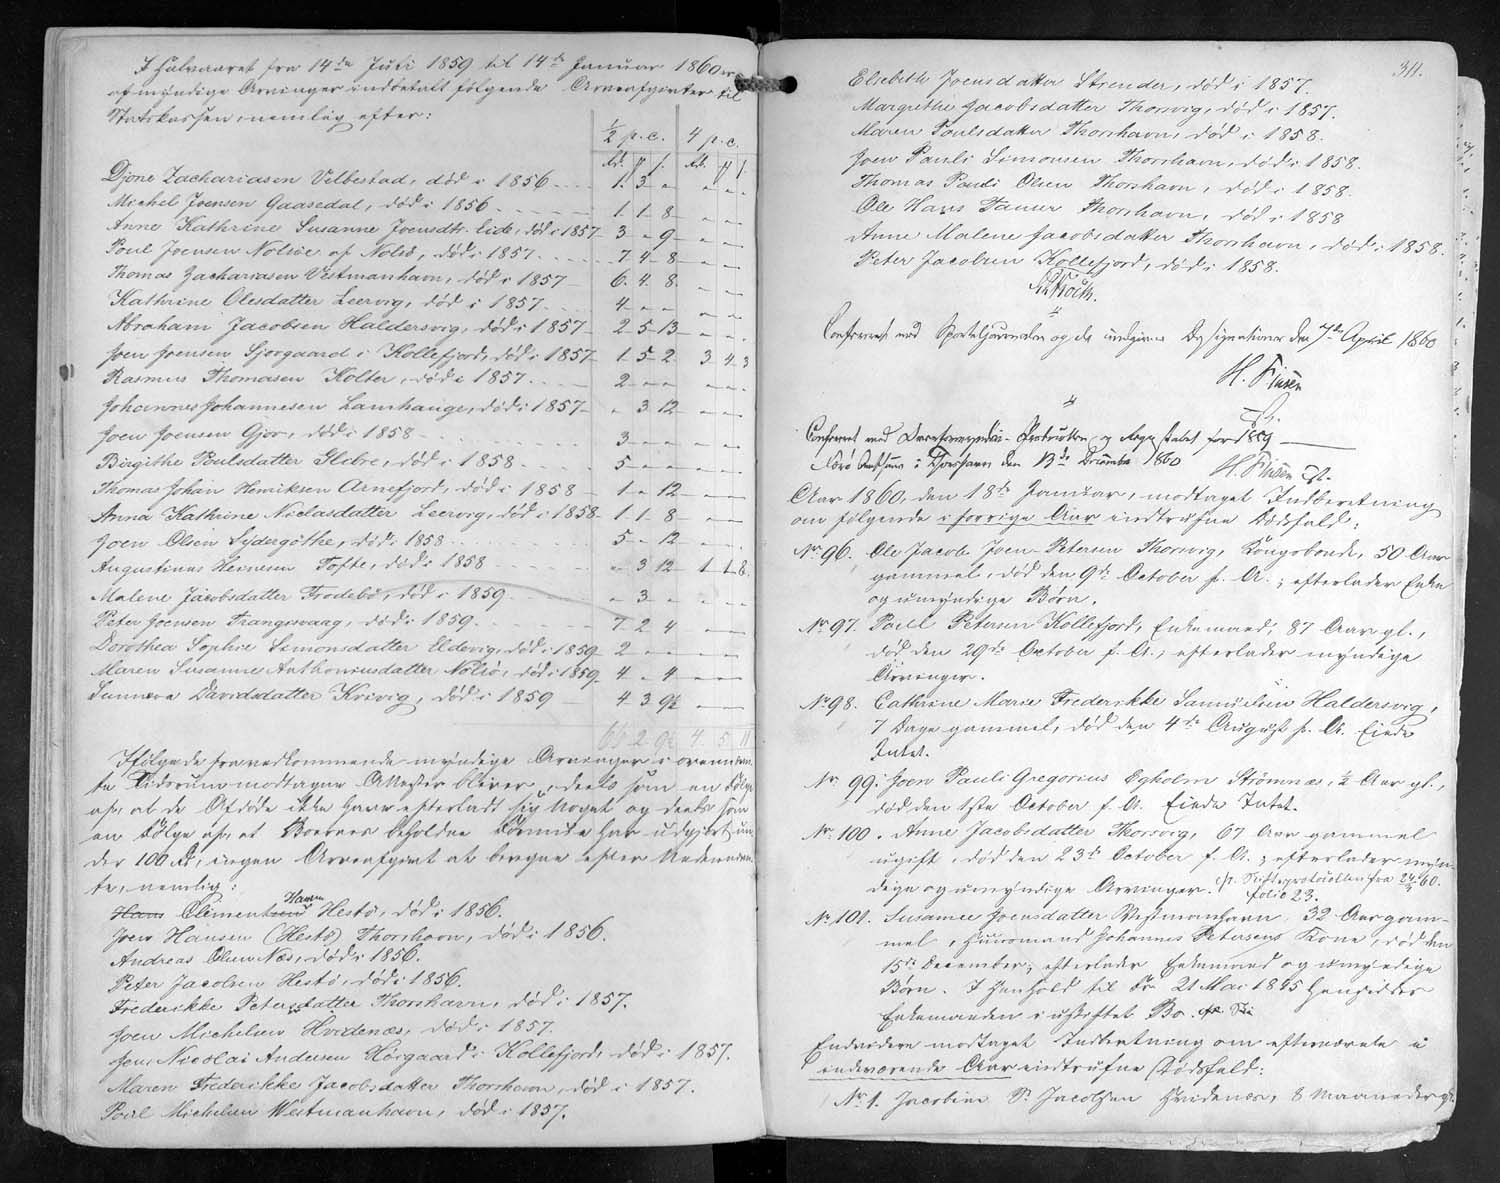 I Halvaaret fra 14de Juli 1859 til 14de Januar 1860 er
af myndige Arvinger indbetalt følgende Arveafgivter til
Statskassen, nemlig efter:
½ p.c. 4 p.c.
Rd. ꝳ ß. Rd. ꝳ ß.
Djone Zachariasen Velbestad, död i 1856 1. 3 - " " " "
Michel Joensen Gaasedal, död i 1856 1 1 8 " " "
Anne Kathrine Susanne Joensdtr. Lide, död i 1857 3 " 9 " " "
Poul Joensen Nolsöe af Nolsö, död i 1857 7 4 8 " " "
Thomas Zachariasen Vestmanhavn, död i 1857 6. 4. 8. " " "
Kathrine Olesdatter Leervig, död i 1857 4 " " " " "
Abraham Jacobsen Haldersvig, död i 1857 2 5 13 " " "
Joen Joensen Sjovgaard i Kollefjord, död i 1857 1 5 2 3 4 3
Rasmus Thomasen Kolter, död i 1857 2 " " " " "
Johannes Johannesen Lamhauge, död i 1857 " 3 12 " " "
Joen Joensen Gjov, död i 1858 3 " " " " "
Birgithe Poulsdatter Glibre, död i 1858 5 " " " " "
Thomas Johan Henriksen Arnefjord, död i 1858 1 " 12 " " "
Anna Kathrine Niclasdatter Leervig, död i 1858 1 1 8 " " "
Joen Olsen Sydergöthe, död i 1858 5 " 12 " " "
Augustinus Heinesen Tofte, död i 1858 " 3 12 1 1 8.
Malene Jacobsdatter Frodebö, död i 1859 " 3 " " " "
Peter Joensen Trangisvaag, död i 1859 7 2 4 " " "
Dorothea Sophie Simonsdatter Eldevig, död i 1859 2 " " " " "
Maren Susanne Anthoniusdatter Nolsö, död i 1859 4 " 4 " " "
Sunneva Davidsdatter Kvivig, död i 1859 4 3 9½ " " "
66 2 9½ 4 5 11
Ifölge de fra vedkommende myndige Arvinger i ovennævn-
te Tidsrum modtagne Attester bliver, deels som en Fölge
af, at de Afdöde ikke have efterladt sig Noget og deels som
en Fölge af, at Boernes beholdne Formue har udgjort un-
der 100 Rd, ingen Arveafgivt at beregne efter Nedennævn-
te, nemlig:
Hans Clementsen Hansen Hestö, död i 1856.
Joen Hansen (Hestö) Thorshavn, död i 1856.
Andreas Olsen Næs, död i 1856.
Peter Jacobsen Hestö, död i 1856.
Frederikke Petersdatter Thorshavn, död i 1857.
Joen Michelsen Hvidenæs, död i 1857.
Jens Nicolai Andersen Hörgaard i Kollefjord, död i 1857.
Maren Frederikke Jacobsdatter Thorshavn, död i 1857.
Poul Michelsen Westmanhavn, död i 1857.
311.
Elsebeth Joensdatter Strender, död i 1857.
Margrethe Jacobsdatter Thorsvig, död i 1857.
Maren Poulsdatter Thorshavn, död i 1858.
Joen Pauli Simonsen Thorshavn, död i 1858.
Thomas Pauli Olsen Thorshavn, död i 1858.
Ole Hans Tauser Thorshavn, död i 1858
Anne Malene Jacobsdatter Thorshavn, död i 1858.
Peter Jacobsen Kollefjord, död i 1858.
Confereret med Sporteljournalen og de indgivne Designationer den 7de April 1860
H. Finsen
Confereret med Overformynderi-Protocollen og Regnskabet for 1859
Færö Amthuus i Thorshavn den 13de December 1860 H. Finsen
Aar 1860, den 18de Januar, modtaget Indberetning
om fölgende i forrige Aar indtrufne Dödsfald:
No 96. Ole Jacob Joen Petersen Thorsvig, Kongsbonde, 50 Aar
gammel, död den 9de October f. A.; efterlader Enke
og umyndige Börn.
No 97. Poul Petersen Kollefjord, Enkemand, 87 Aar gl.,
död den 29de October f. A.; efterlader myndige
Arvinger.
No 98. Cathrine Marie Frederikke Samuelsen Haldersvig,
7 Dage gammel, död den 4de August f. A. Eiede
Intet.
No. 99. Joen Pauli Gregorius Egholm Strömnæs, ½ Aar gl.,
död den 1ste October f. A. Eiede Intet.
No. 100. Anne Jacobsdatter Thorsvig, 67 Aar gammel
ugift, död den 23de October f. A.; efterlader myn-
dige og umyndige Arvinger. cfr. Skifteprotocollen fra 24/60.
folio 23.
No 101. Susanne Joensdatter Westmanhavn, 32 Aar gam-
mel, Huusmand Johannes Petersens Kone, död den
15de December; efterlader Enkemand og umyndige
Börn. I Henhold til Fr 21 Mai 1845 hensidder
Enkemanden i uskiftet Bo.
Endvidere modtaget Indberetning om efternævnte i
indeværende Aar indtrufne Dödsfald:
No. 1. Jacobine S. Jacobsen Hvidenæs, 8 Maaneder gl.